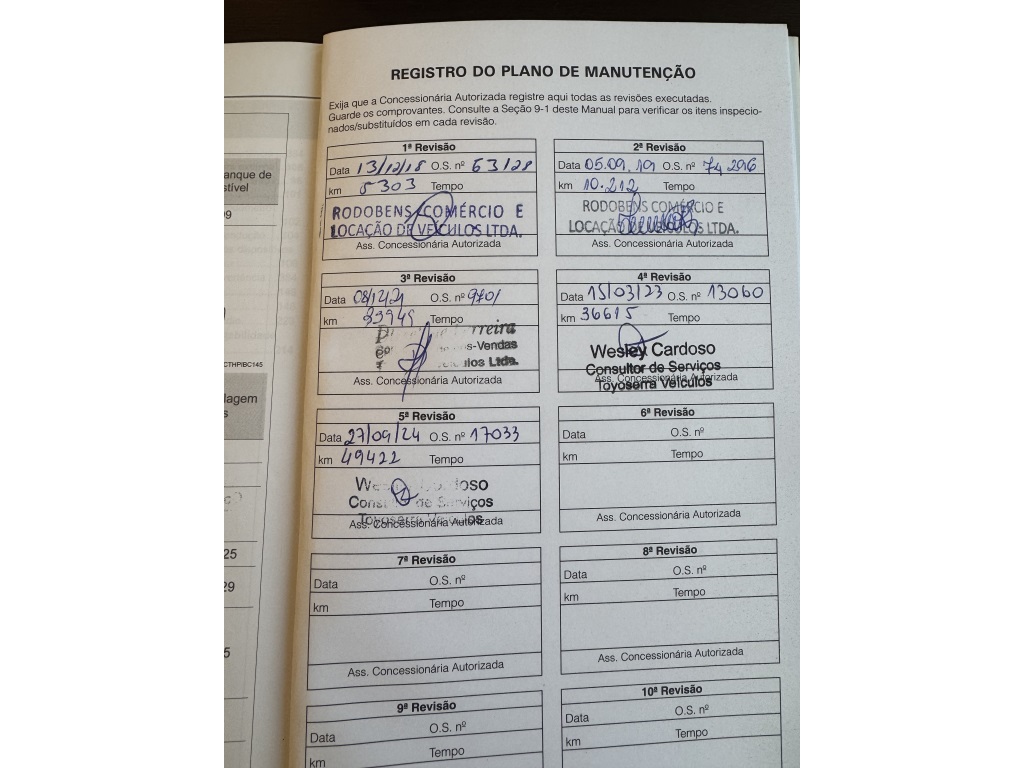 REGISTRO DO PLANO DE MANUTENÇÃO
Exija que a Concessionária Autorizada registre aqui todas as revisões executadas.
Guarde os comprovantes. Consulte a Seção 9-1 deste Manual para verificar os itens inspecio-
nados/substituídos em cada revisão.
1ª Revisão
Data 13/12/18 O.S. nº 63128
km 5303 Tempo
RODOBENS COMÉRCIO E
LOCAÇÃO DE VEÍCULOS LTDA.
Ass. Concessionária Autorizada
2ª Revisão
Data 05.09.19 O.S. nº 74296
km 10.212 Tempo
RODOBENS COMÉRCIO E
LOCAÇÃO DE VEÍCULOS LTDA.
Ass. Concessionária Autorizada
3ª Revisão
Data O.S. nº
km Tempo
-Vendas
Ltda.
Ass. Concessionária Autorizada
4ª Revisão
Data 15/03/23 O.S. nº 13060
km 36615 Tempo
Wesley Cardoso
Consultor de Serviços
Ass. Concessionária Autorizada
Toyoserra Veículos
5ª Revisão
Data 27/09/24 O.S. nº 17033
km 49422 Tempo
Wesley Cardoso
Consultor de Serviços
Toyoserra Veículos
Ass. Concessionária Autorizada
6ª Revisão
Data O.S. nº
km Tempo
Ass. Concessionária Autorizada
7ª Revisão
Data O.S. nº
km Tempo
Ass. Concessionária Autorizada
8ª Revisão
Data O.S. nº
km Tempo
Ass. Concessionária Autorizada
9ª Revisão
Data O.S. nº
km
10ª Revisão
Data O.S. nº
km Tempo
anque de
stível
CTHPIBC145
lagem
s
25
29
5